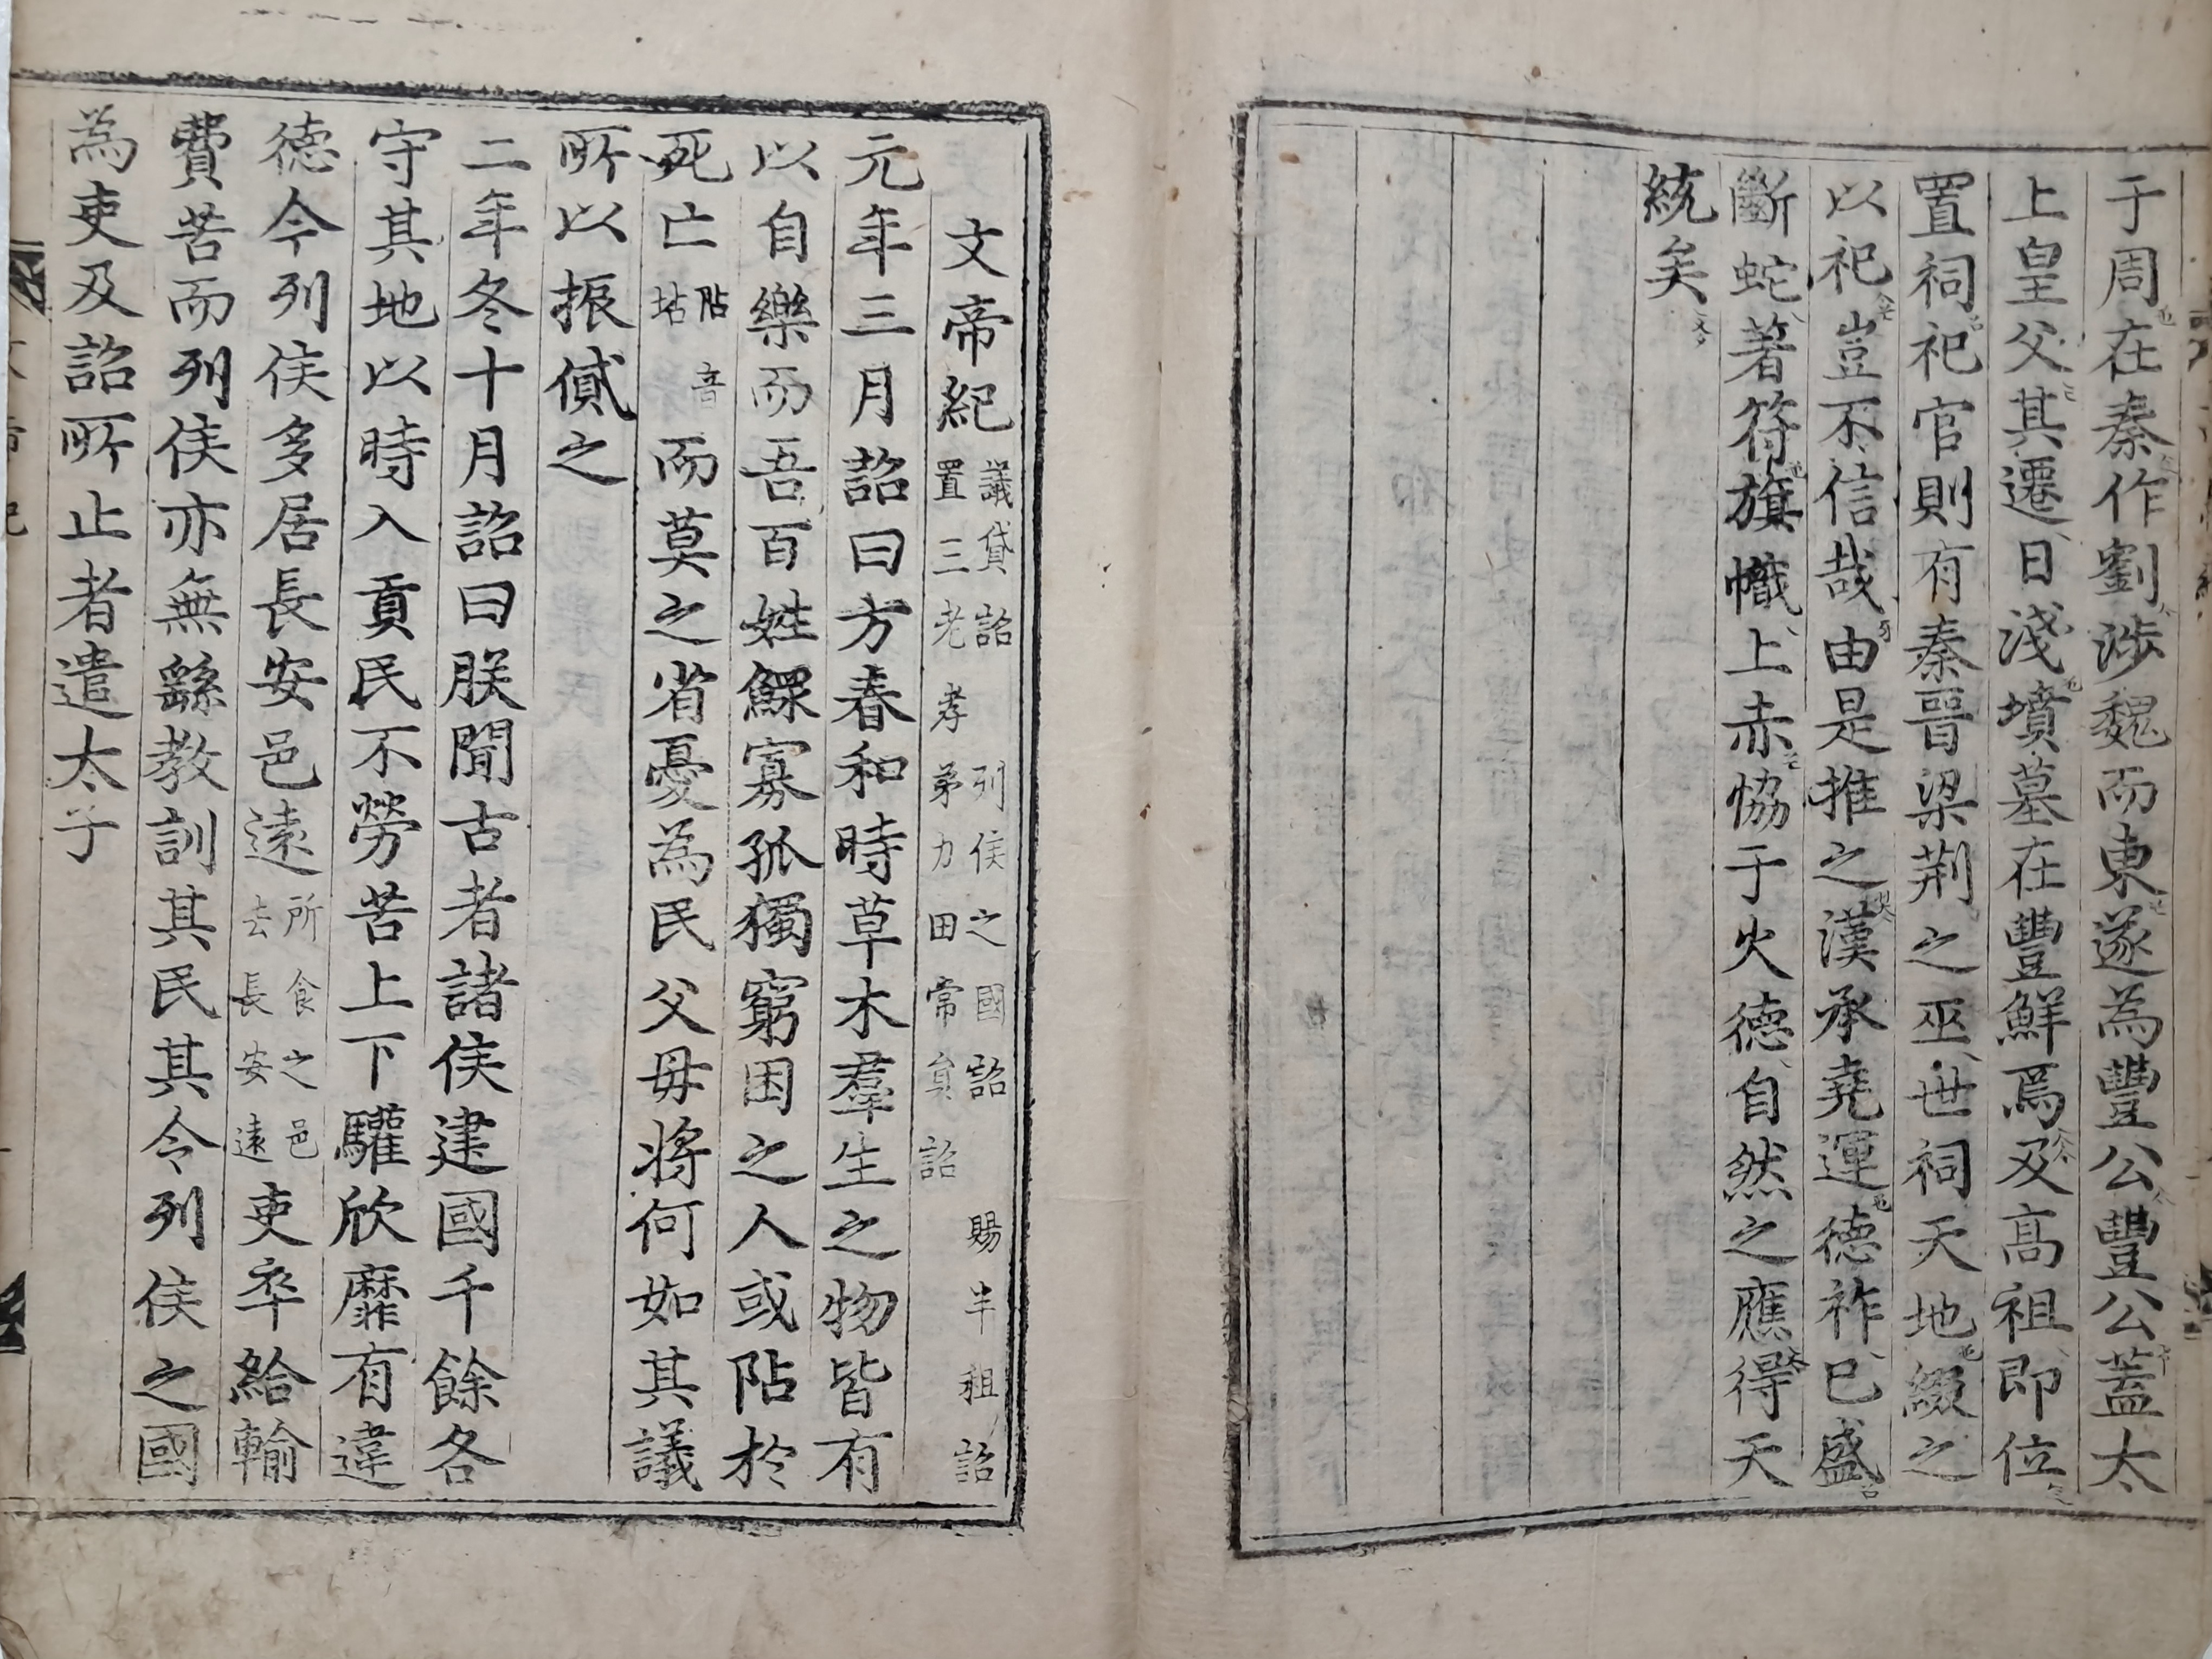 于周在秦作劉涉魏而東遂為豐公豐公蓋太
上皇父其遷日淺墳墓在豐鮮焉及高祖即位
置祠祀官則有秦晉梁荆之巫世祠天地綴之
以祀豈不信哉由是推之漢承堯運德祚已盛
斷蛇著符旗幟上赤恊于火德自然之應得天
統矣
文帝紀
議貸詔 列侯之國詔 賜半租詔
置三老孝弟力田常貟詔
元年三月詔曰方春和時草木羣生之物皆有
以自樂而吾百姓鰥寡孤獨窮困之人或阽於
死亡
阽音
坫
而莫之省憂為民父母將何如其議
所以振貸之
二年冬十月詔曰朕聞古者諸侯建國千餘各
守其地以時入貢民不勞苦上下驩欣靡有違
德今列侯多居長安邑遠
所食之邑
去長安遠
吏卒給輸
費苦而列侯亦無繇教訓其民其令列侯之國
為吏及詔所止者遣太子